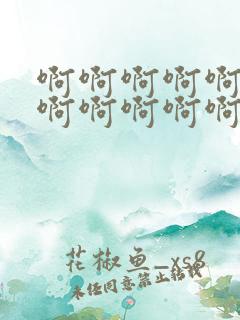 啊啊啊啊啊
啊啊啊啊啊
花椒鱼_xs8
未经同意禁止转载